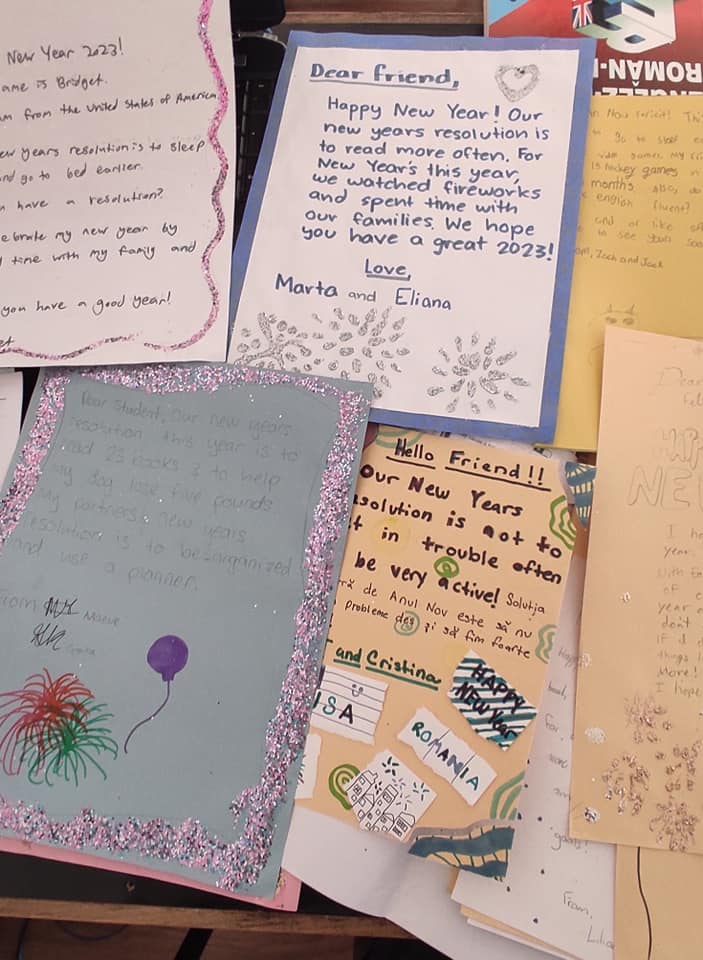 New Year 2023!
ame is Bridget.
m from the United States of America
ew years resolution is to sleep
nd go to bed earlier.
have a resolution?
ebrate my new year by
time with my family and
you have a good year!
Dear friend,
Happy New Year! Our
new years resolution is
to read more often. For
New Year's this year,
we watched fireworks
and spent time with
our families. We hope
you have a great 2023!
Love,
Marta and Eliana
ROMÂN-
months
english fluent?
Zach and Jack
Dear Student, Our new years
resolution this year is to
read 23 books & to help
my dog lose five pounds
My partners new years
resolution is to be organized
and use a planner.
From
Maeve
Hello Friend!!
Our New Years
solution is not to
t in trouble often
be very active! Soluția
ră de Anul Nov este să nu
probleme des și să fim foarte
and Cristina
HAPPY
New Year
USA
ROMANIA
Dear
HAPPY
NEW
I ho
year.
of
year
don't
if I d
things
More!
I hope
goals!
From,